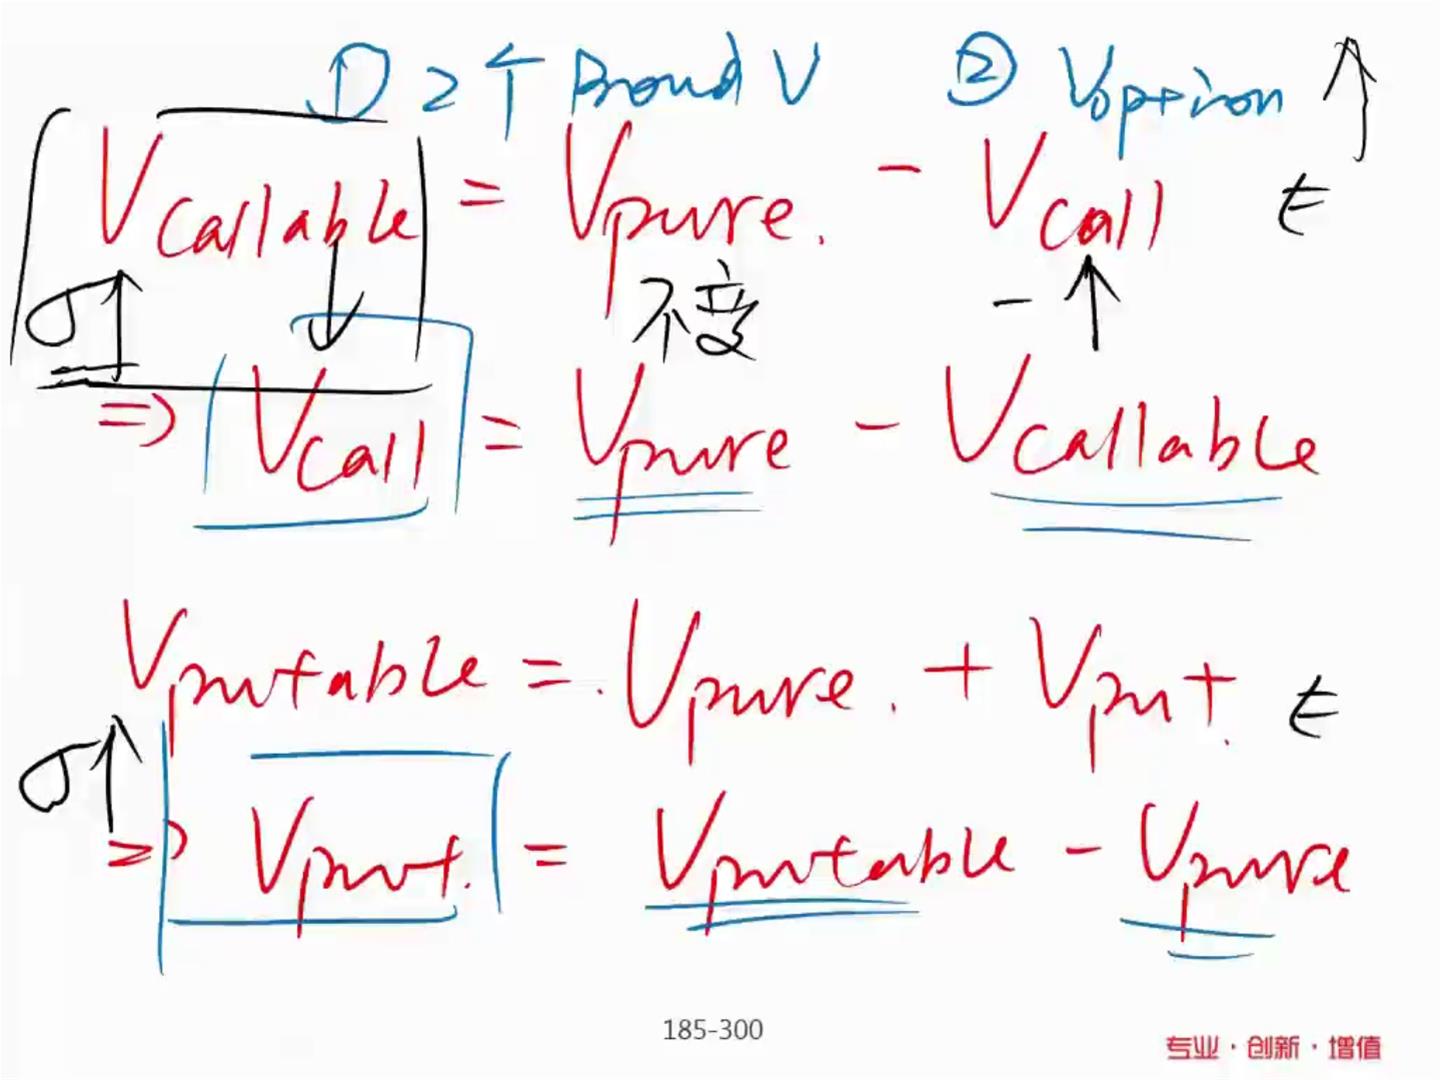 ① 2个 Bond V ② Voption ↑
Vcallable = Vpure. - Vcall t
σ↑ ↓ 不变 - ↑
=> Vcall = Vpure - Vcallable
Vputable = Vpure. + Vput. t
σ↑
=> Vput. = Vputable - Vpure
185-300
专业·创新·增值